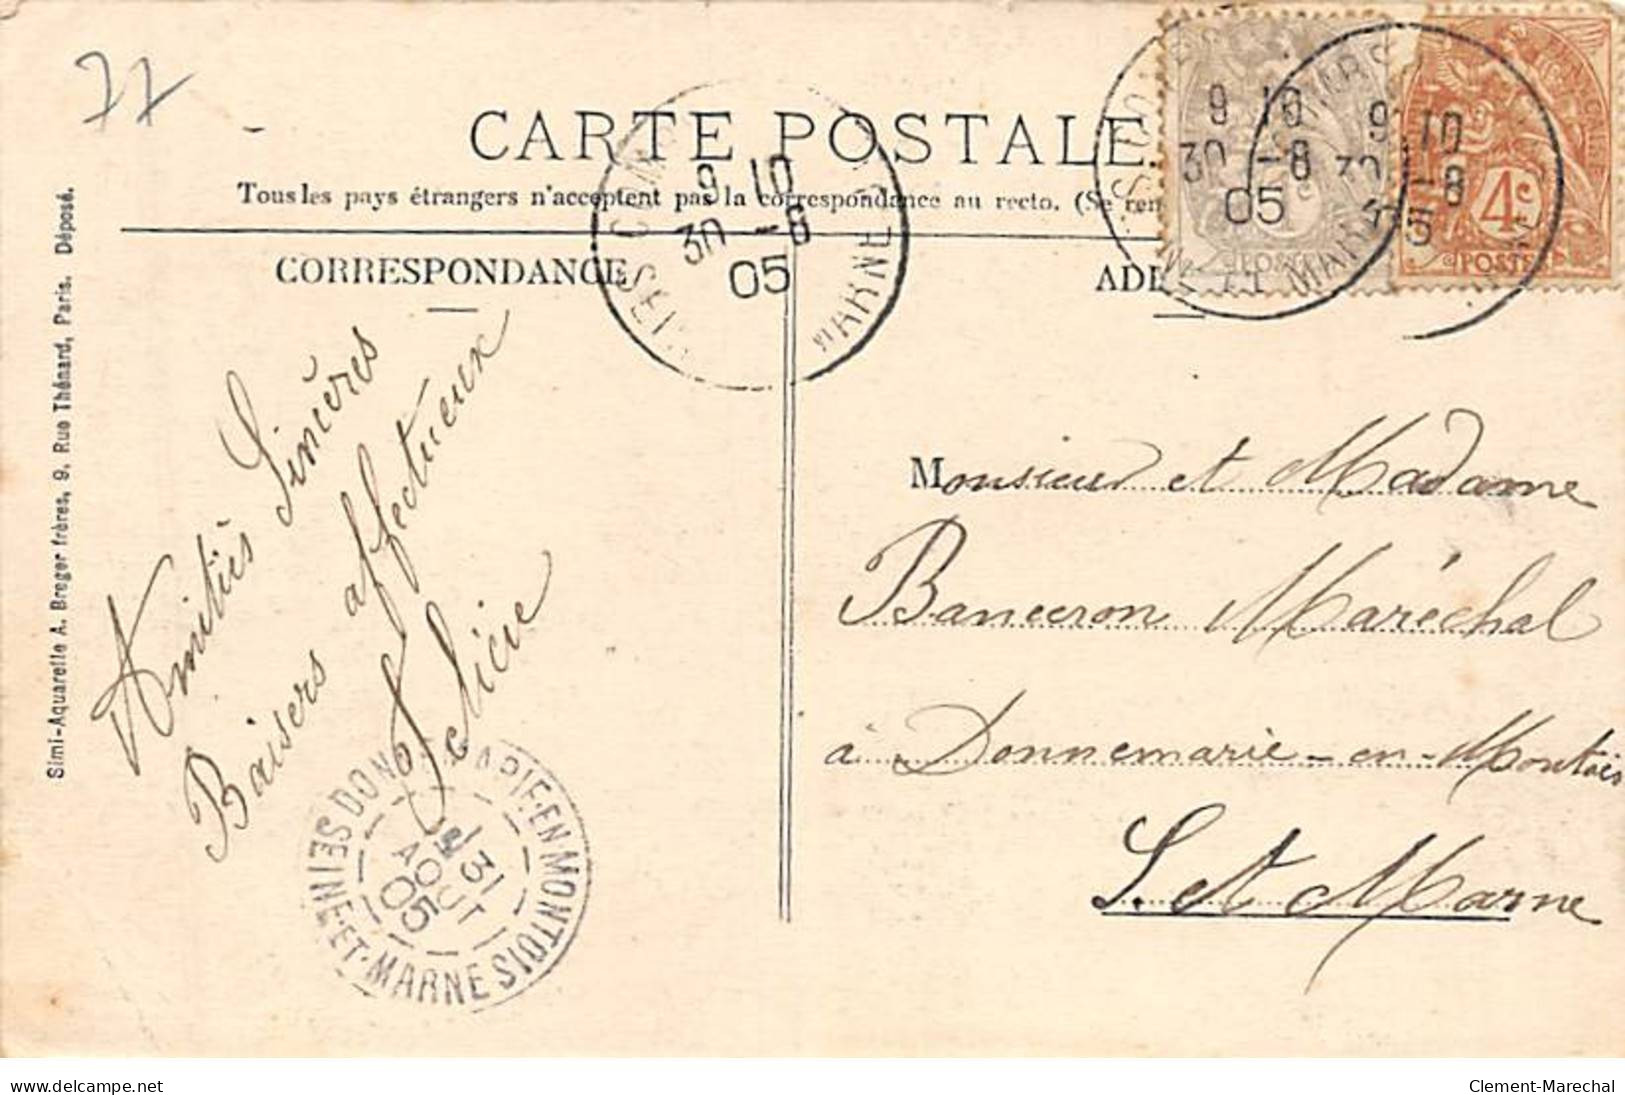 77
CARTE POSTALE
Tous les pays étrangers n'acceptent pas la correspondance au recto. (Se ren
CORRESPONDANCE
AD
Simi-Aquarelle A. Breger frères, 9, Rue Thénard, Paris. Déposé.
9 10
30 -8
05
SEI
MARNE
9 10
30 -8
05
9 10
30 -8
5
POSTES
4c
POSTES
Amitiés Sincères
Baisers affectueux
Monsieur et Madame
Banceron Maréchal
à Donnemarie-en-Montois
S. et Marne
31
AOUT
05
MARIE-EN-MONTOIS
SEINE-ET-MARNE
delcampe.net
Clement-Marechal